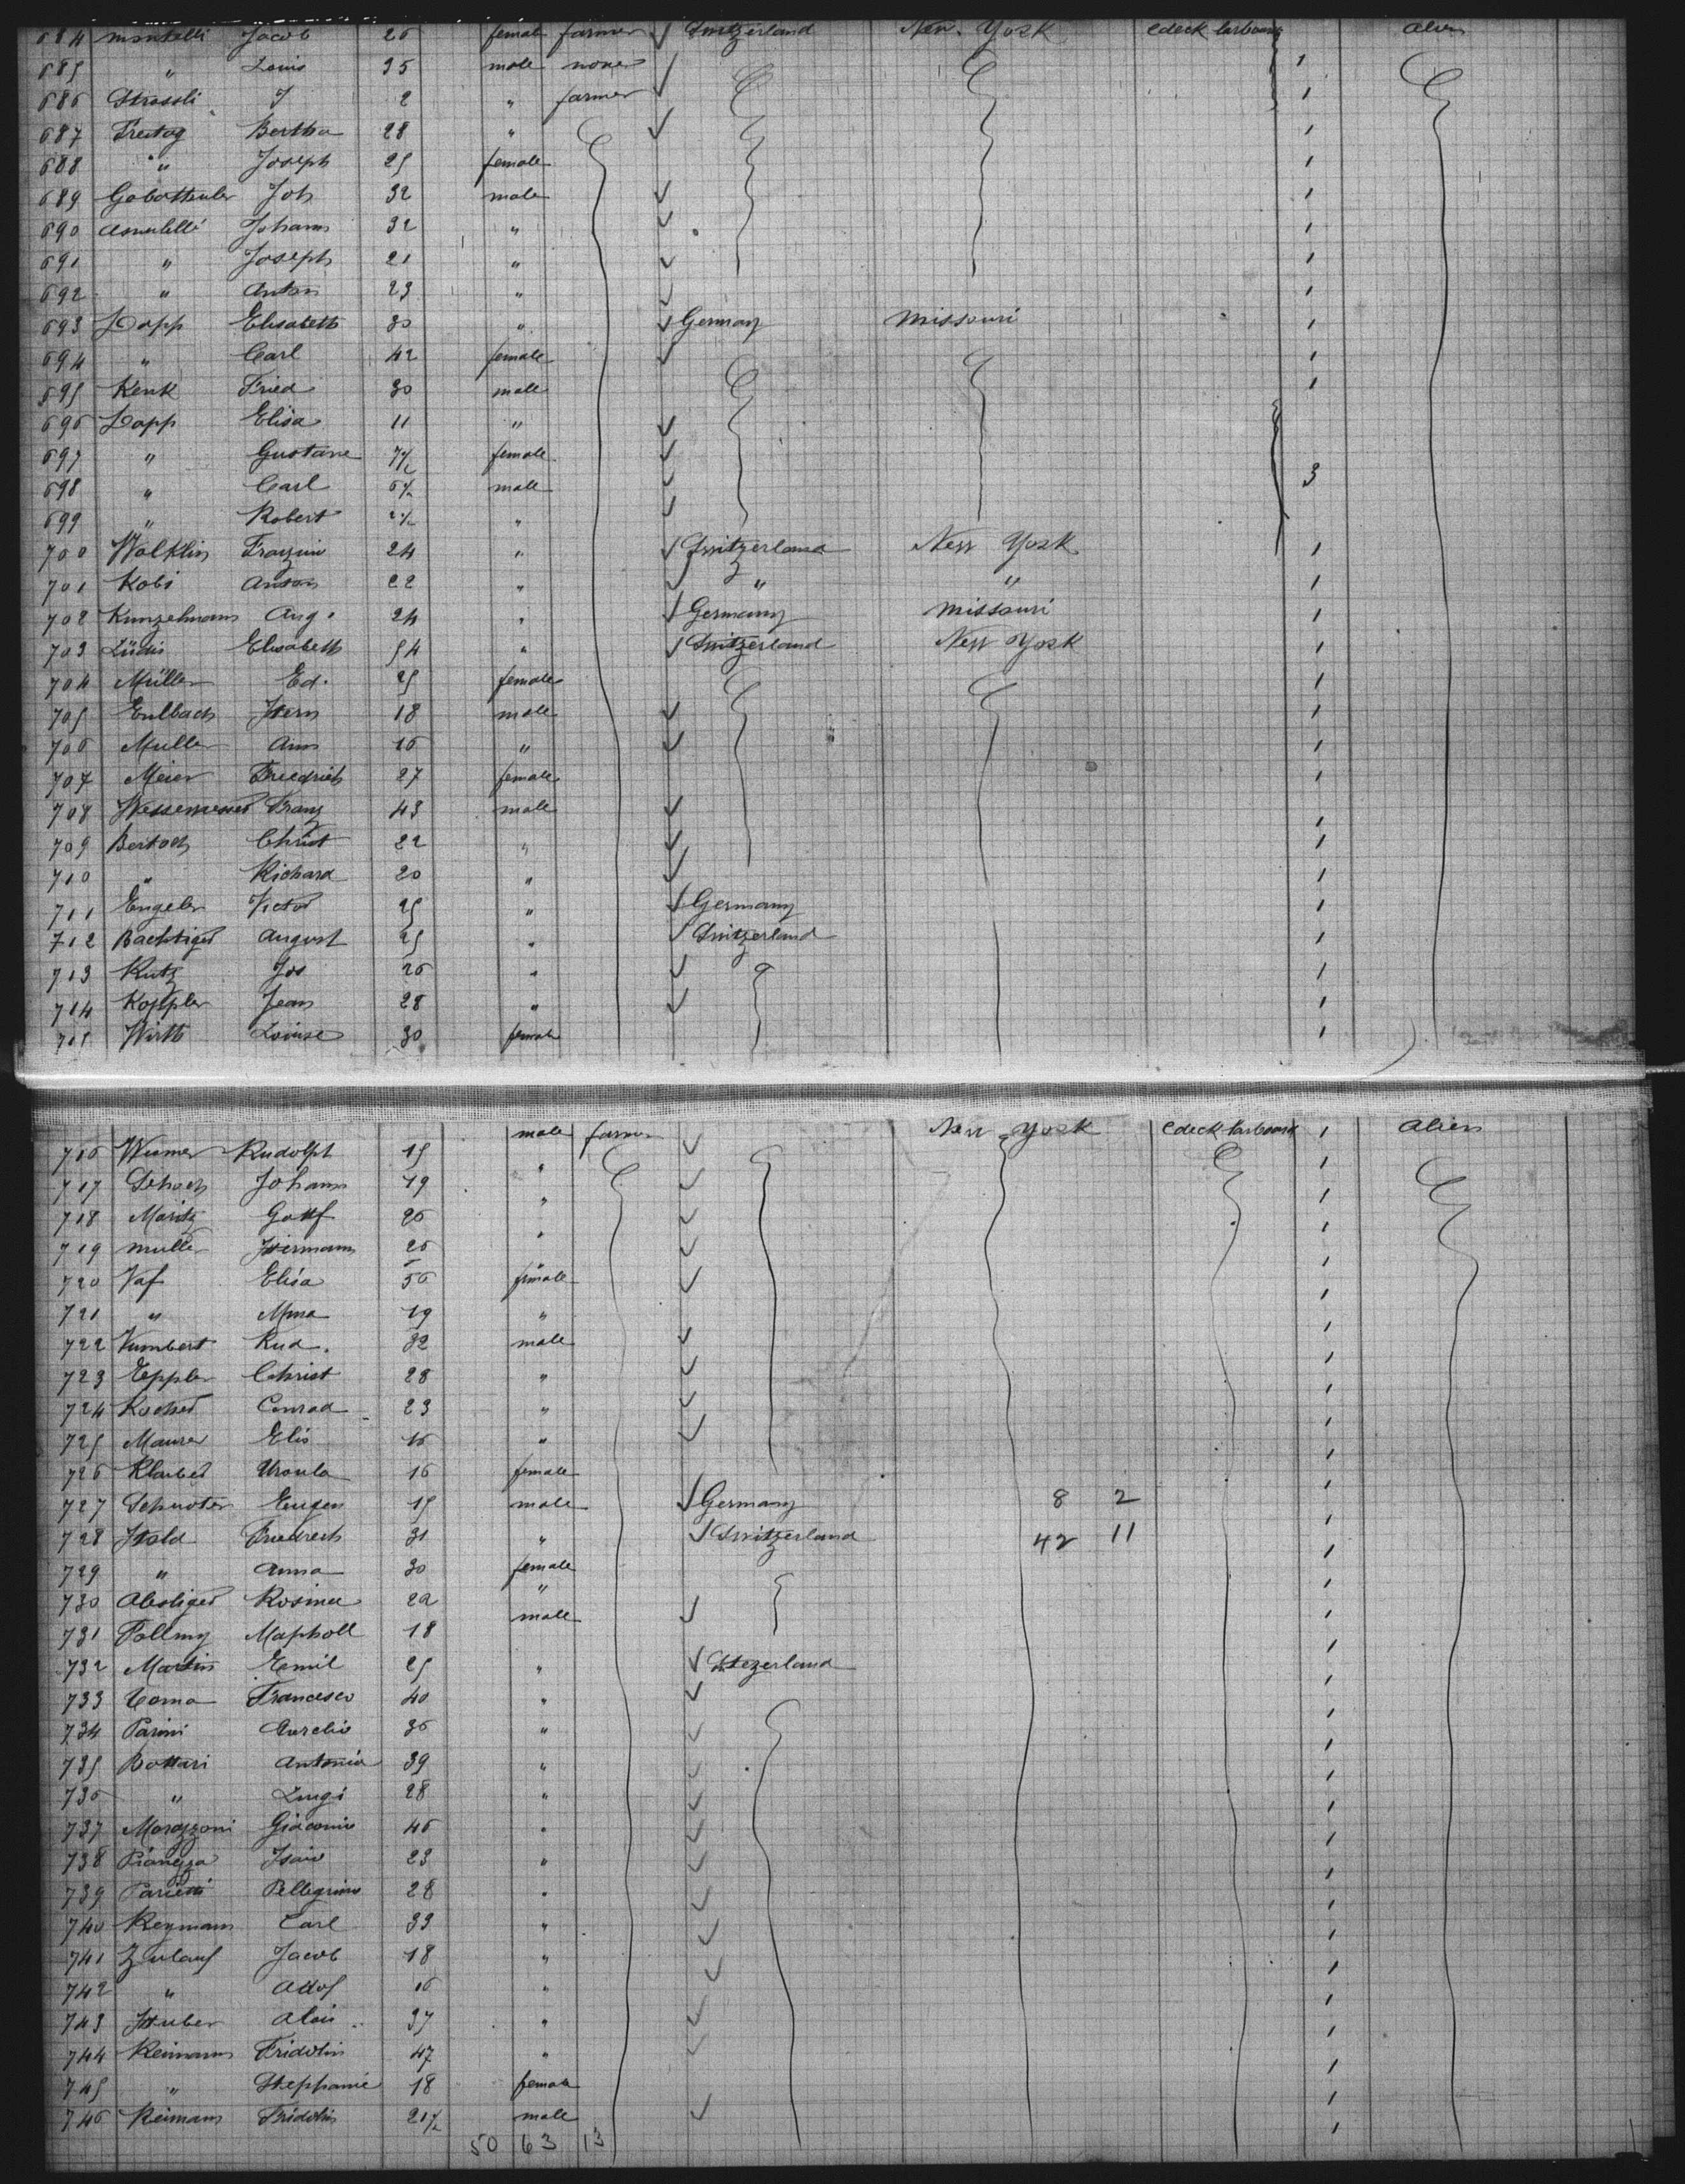 684 Montelli Jacob 26 female farmer ✓ Switzerland New York Cdeck larboard alien
685 " Louis 35 male none ✓ 1
686 Strassli J 2 " farmer ✓ 1
687 Freitag Bertha 28 " ✓ 1
688 " Joseph 25 female 1
689 Joh 32 male ✓ 1
690 Johann 32 " ✓ 1
691 " Joseph 21 " ✓ 1
692 " Anton 23 " ✓ 1
693 Lapp Elisabeth 30 " ✓ Germany Missouri 1
694 " Carl 42 female ✓ 1
695 Kenk Fried 30 male 1
696 Lapp Elisa 11 " ✓
697 " Gustave 7 1/2 female ✓
698 " Carl 6 1/2 male ✓ 3
699 " Robert 2 1/2 " ✓
700 Walklin 24 " ✓ Switzerland New York 1
701 Kobi Anton 22 " ✓ " " 1
702 Kunzelmann Aug. 24 " ✓ Germany Missouri 1
703 Lüdis Elisabeth 54 " ✓ Switzerland New York 1
704 Müller Ed. 25 female 1
705 Eulbach Hern 18 male ✓ 1
706 Muller Ann 16 " ✓ 1
707 Meier Friedrich 27 female 1
708 Franz 43 male ✓ 1
709 Bertoch Christ 22 " ✓ 1
710 " Richard 20 " ✓ 1
711 Engeler Victor 25 " ✓ Germany 1
712 Bachtiger August 25 " ✓ Switzerland 1
713 Kutz Jos 26 " ✓ 1
714 Koppler Jean 28 " ✓ 1
715 Wirth Louise 30 female 1
716 Wumer Rudolph 19 male farmer ✓ New York Cdeck larboard 1 Alien
717 Schoch Johann 19 " ✓ 1
718 Moritz Gottf 26 " ✓ 1
719 Muller Hermann 26 " ✓ 1
720 Vaf Elisa 56 female ✓ 1
721 " Mina 19 " 1
722 Vumbert Rud. 32 male ✓ 1
723 Eppler Christ 28 " ✓ 1
724 Kocher Conrad 23 " ✓ 1
725 Maurer Elis 16 " ✓ 1
726 Klarber Ursula 16 female 1
727 Schuoter Eugen 19 male ✓ Germany 8 2 1
728 Hold Friedrich 31 " ✓ Switzerland 42 11 1
729 " Anna 30 female 1
730 Rosina 22 " 1
731 Pollmy 18 male ✓ 1
732 Martin Emil 25 " ✓ Stezerland 1
733 Coma Francesco 40 " ✓ 1
734 Parini Aurelio 36 " ✓ 1
735 Bottari Antonio 39 " ✓ 1
736 " Luigi 28 " ✓ 1
737 Morazzoni Giacomo 46 " ✓ 1
738 Piangza Isaio 23 " ✓ 1
739 Parietti Pellegrino 28 " ✓ 1
740 Reymann Carl 33 " ✓ 1
741 Zulauf Jacob 18 " ✓ 1
742 " Adolf 16 " ✓ 1
743 Huber Alois 37 " ✓ 1
744 Reimann Fridolin 47 " ✓ 1
745 " Stephanie 18 female 1
746 Reimann Fridolin 21 1/2 male ✓ 1
50 63 13